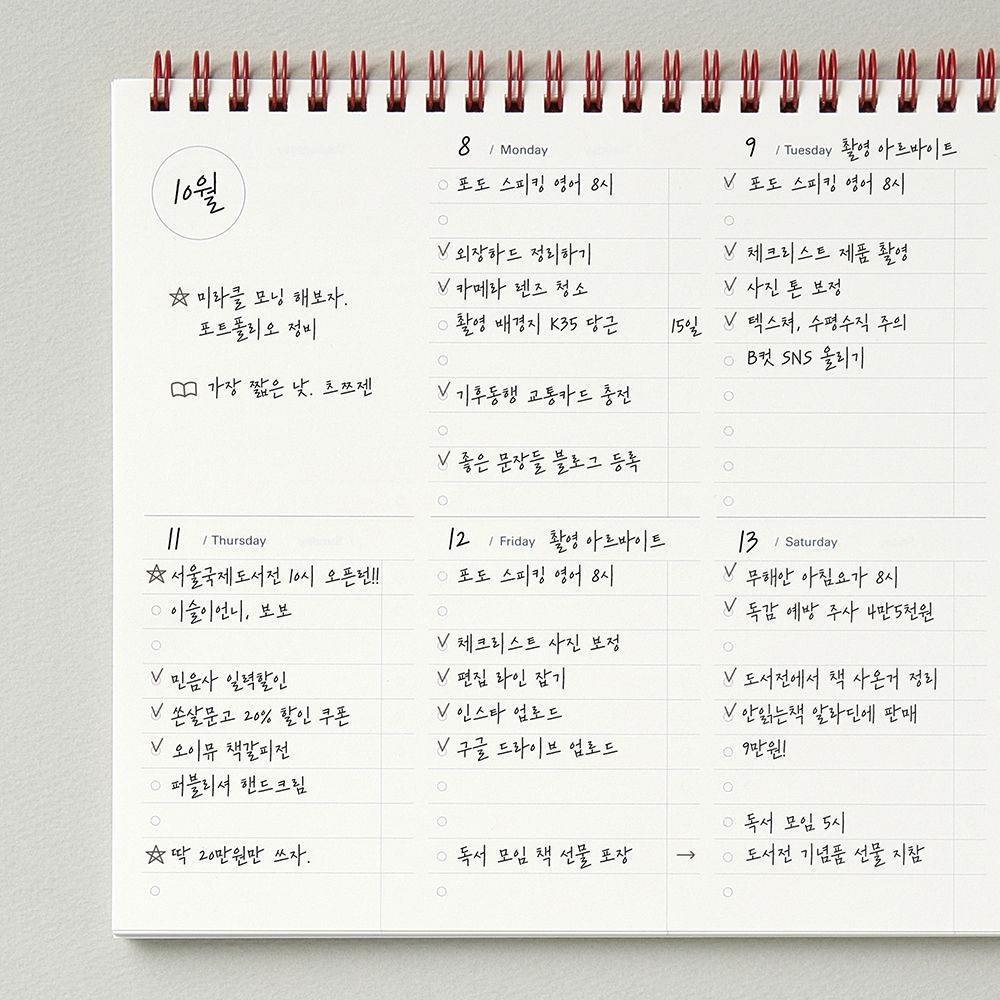 10월
☆ 미라클 모닝 해보자.
포트폴리오 정비
가장 짧은 낮. 츠쯔젠
8 / Monday
포도 스피킹 영어 8시
외장하드 정리하기
카메라 렌즈 청소
촬영 배경지 K35 당근 15일
기후동행 교통카드 충전
좋은 문장들 블로그 등록
9 / Tuesday 촬영 아르바이트
포도 스피킹 영어 8시
체크리스트 제품 촬영
사진 톤 보정
텍스쳐, 수평수직 주의
B컷 SNS 올리기
11 / Thursday
☆ 서울국제도서전 10시 오픈런!!
이슬이언니, 보보
민음사 일력할인
쏜살문고 20% 할인 쿠폰
오이뮤 책갈피전
퍼블리셔 핸드크림
☆ 딱 20만원만 쓰자.
12 / Friday 촬영 아르바이트
포도 스피킹 영어 8시
체크리스트 사진 보정
편집 라인 잡기
인스타 업로드
구글 드라이브 업로드
독서 모임 책 선물 포장 →
13 / Saturday
무해안 아침요가 8시
독감 예방 주사 4만5천원
도서전에서 책 사온거 정리
안읽는책 알라딘에 판매
9만원!
독서 모임 5시
도서전 기념품 선물 지참